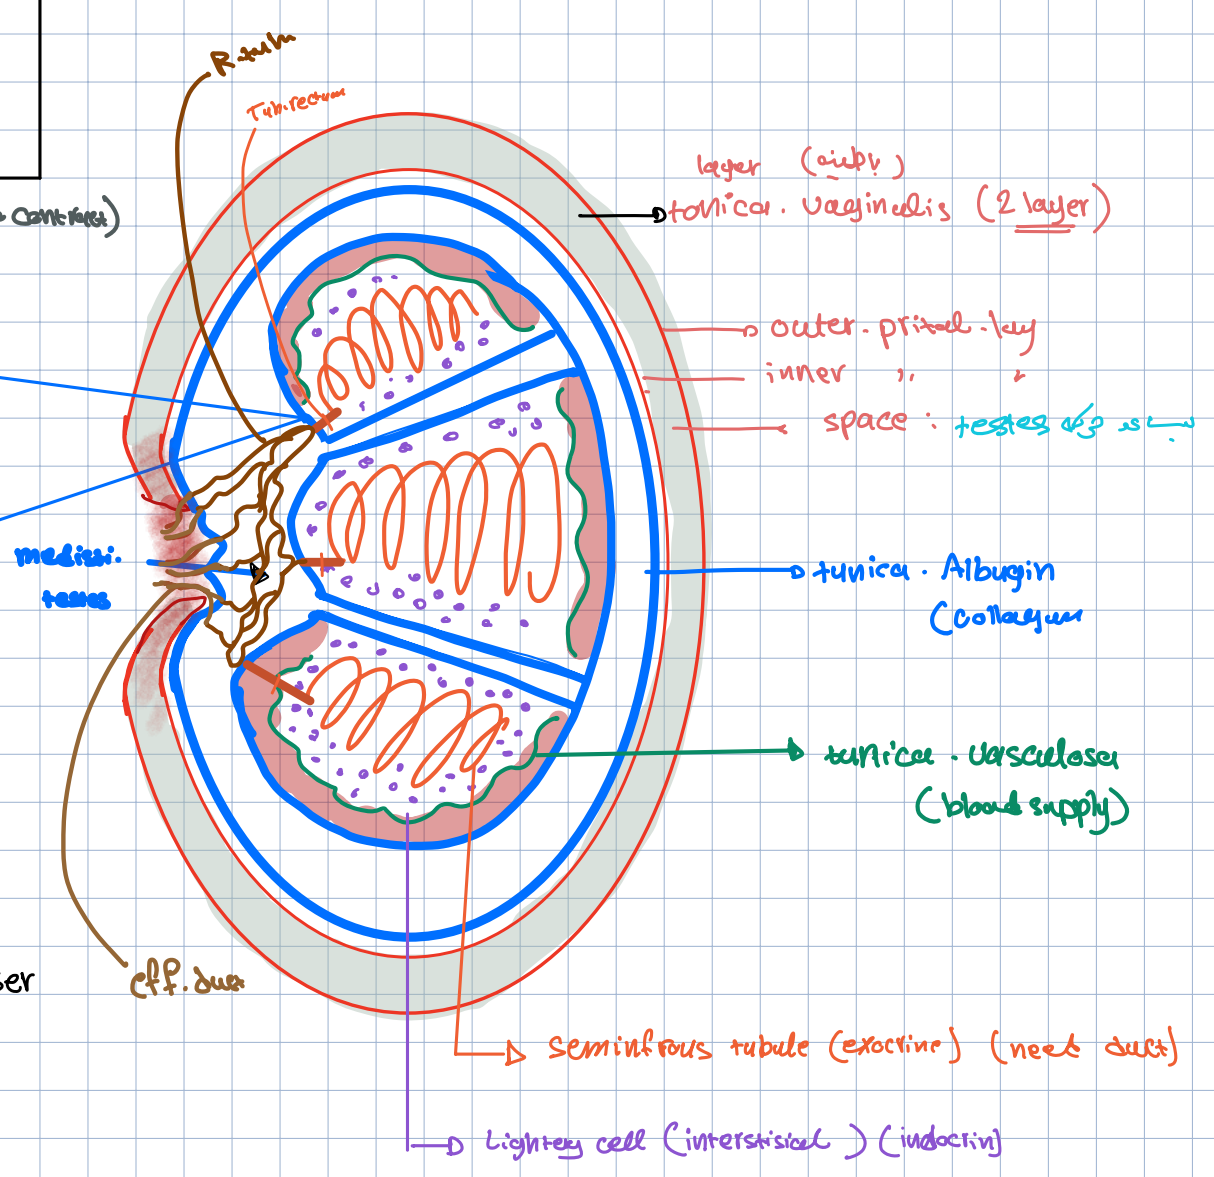 R.tuln
Tub.rectum
contract)
layer
tonica. vaginalis (2 layer)
outer. prital. lay
inner ,, ,
space : testes
medisti.
testes
tunica. Albugin
(collagun
tunica. vasculosa
(blood supply)
ser
eff. duct
seminfrous tubule (exocrine) (need duct)
Lightey cell (interstisical) (indocrin)